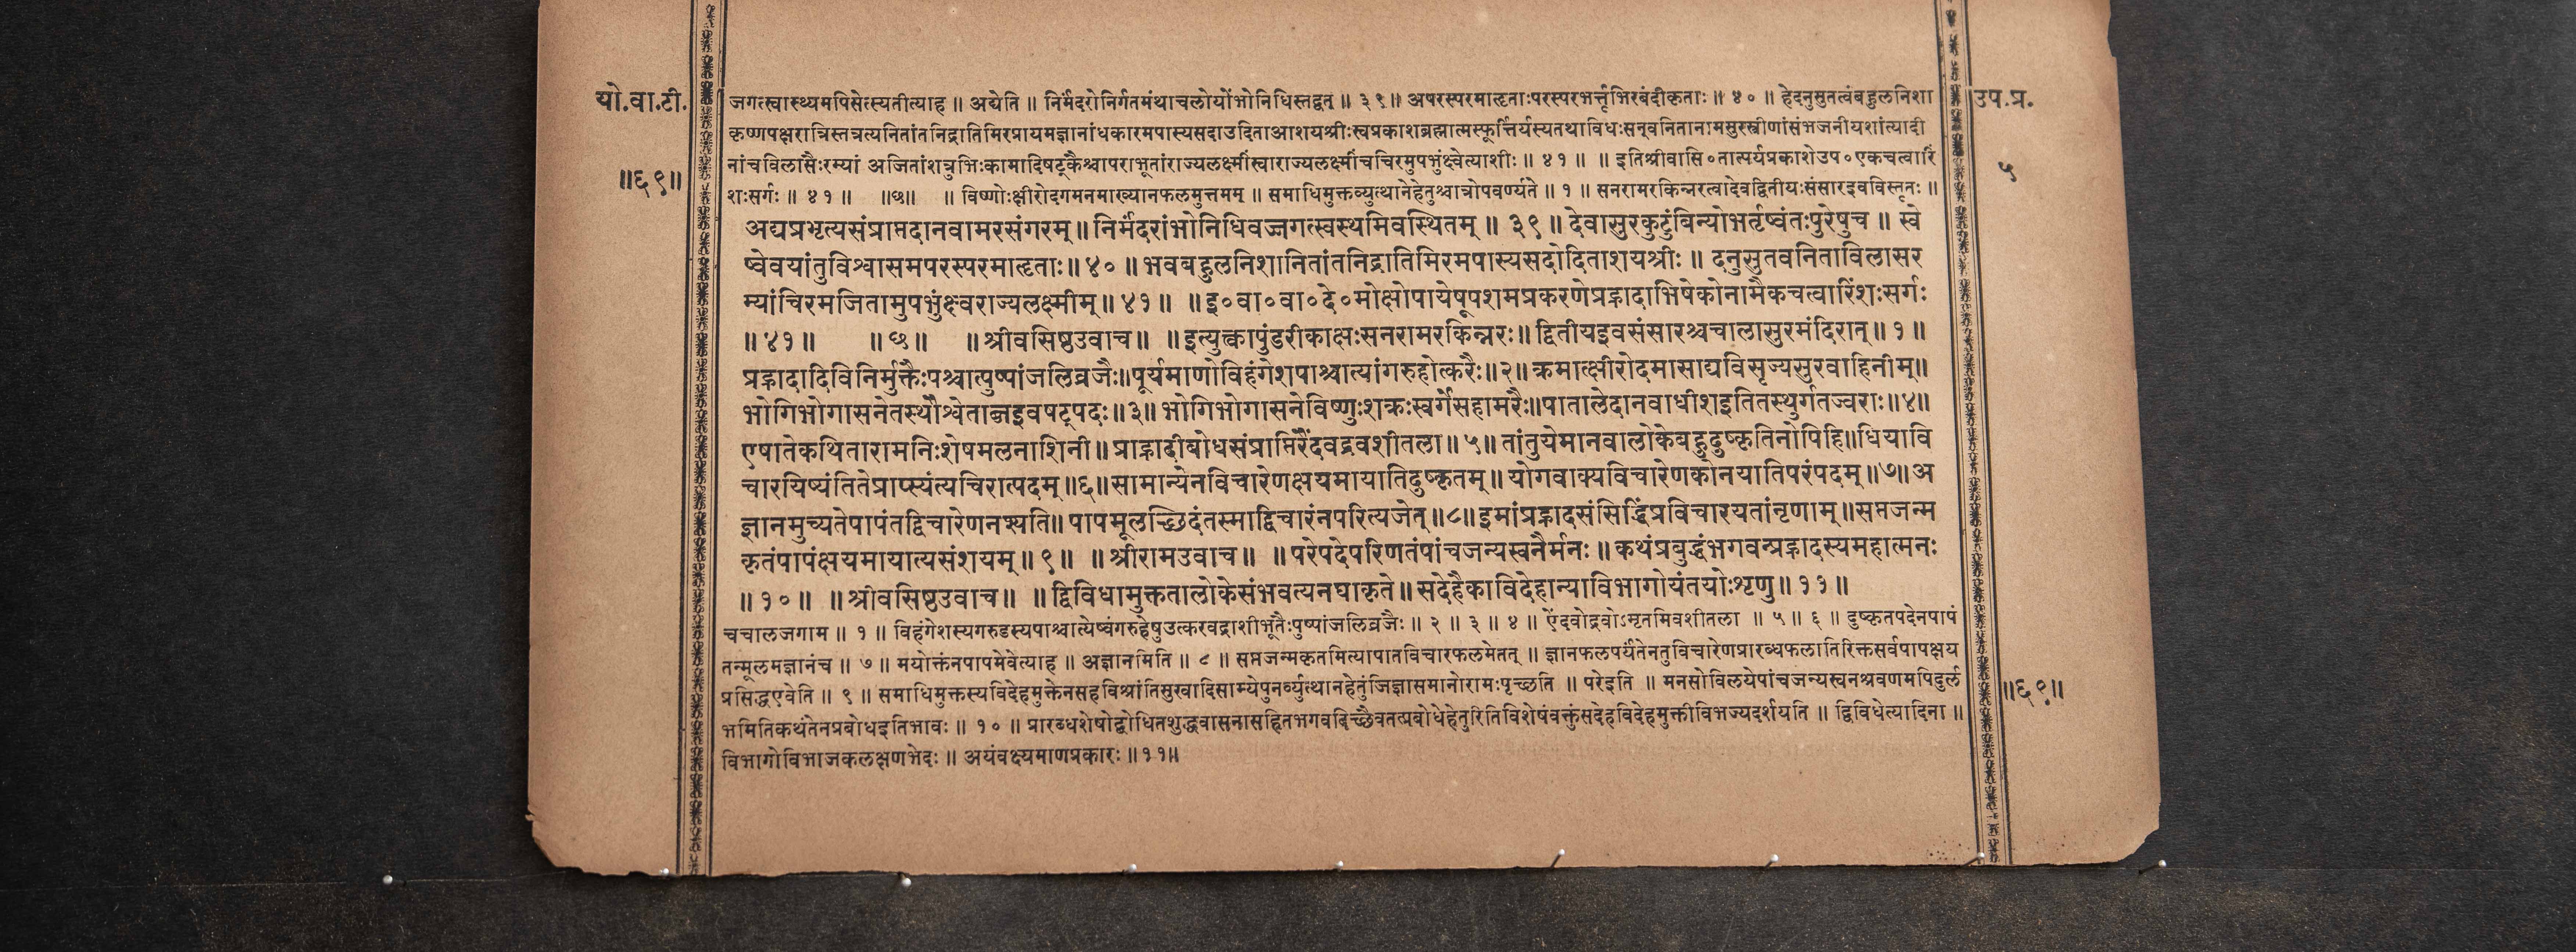 यो.वा.टी.
॥६९॥
जगत्स्वास्थ्यमपिसेत्स्यतीत्याह ॥ अद्येति ॥ निर्मंदरोनिर्गतमंथाचलोयोंभोनिधिस्तद्वत् ॥ ३९॥ अपरस्परमाहृताःपरस्परभर्त्तृभिरबंदीकृताः ॥ ४० ॥ हेदनुसुतत्वंबहुलनिशा
कृष्णपक्षरात्रिस्तत्रत्यनितांतनिद्रातिमिरप्रायमज्ञानांधकारमपास्यसदाउदिताआशयश्रीःस्वप्रकाशब्रह्मात्मस्फूर्त्तिर्यस्यतथाविधःसन्वनितानामसुरस्त्रीणांसंभजनीयशांत्यादी
नांचविलासैःरम्यां अजितांशत्रुभिःकामादिषट्कैश्चापराभूतांराज्यलक्ष्मींस्वाराज्यलक्ष्मींचचिरमुपभुंक्ष्वेत्याशीः ॥ ४१ ॥ ॥ इतिश्रीवासि॰तात्पर्यप्रकाशेउप॰एकचत्वारिं
शःसर्गः ॥ ४१ ॥ ॥छ॥ ॥ विष्णोःक्षीरोदगमनमाख्यानफलमुत्तमम् ॥ समाधिमुक्तव्युत्थानेहेतुश्चात्रोपवर्ण्यते ॥ १ ॥ सनरामरकिन्नरत्वादेवद्वितीयःसंसारइवविस्तृतः ॥
अद्यप्रभृत्यसंप्राप्तदानवामरसंगरम् ॥ निर्मंदरांभोनिधिवज्जगत्स्वस्थमिवस्थितम् ॥ ३९ ॥ देवासुरकुटुंबिन्योभर्तृष्वंतःपुरेषुच ॥ स्वे
ष्वेवयांतुविश्वासमपरस्परमाहृताः॥ ४० ॥ भवबहुलनिशानितांतनिद्रातिमिरमपास्यसदोदिताशयश्रीः ॥ दनुसुतवनिताविलासर
म्यांचिरमजितामुपभुंक्ष्वराज्यलक्ष्मीम् ॥ ४१ ॥ ॥ इ॰वा॰वा॰दे॰मोक्षोपायेषूपशमप्रकरणेप्रह्लादाभिषेकोनामैकचत्वारिंशःसर्गः
॥ ४१ ॥ ॥ छ ॥ ॥ श्रीवसिष्ठउवाच ॥ ॥ इत्युत्काुपुंडरीकाक्षःसनरामरकिन्नरः॥ द्वितीयइवसंसारश्चचालासुरमंदिरात् ॥ १ ॥
प्रह्लादादिविनिर्मुक्तैःपश्चात्पुष्पांजलिव्रजैः॥पूर्यमाणोविहंगेशपाश्चात्यांगरुहोत्करैः॥२॥ क्रमात्क्षीरोदमासाद्यविसृज्यसुरवाहिनीम्॥
भोगिभोगासनेतस्थौश्वेताब्जइवषट्पदः॥३॥ भोगिभोगासनेविष्णुःशक्रःस्वर्गेसहामरैः॥पातालेदानवाधीशइतितस्थुर्गतज्वराः॥४॥
एषातेकथितारामनिःशेषमलनाशिनी॥ प्राह्लादीबोधसंप्राप्तिरैंदवद्रवशीतला॥ ५॥ तांतुयेमानवालोकेबहुदुष्कृतिनोपिहि॥धियावि
चारयिष्यंतितेप्राप्स्यंत्यचिरात्पदम्॥६॥ सामान्येनविचारेणक्षयमायातिदुष्कृतम्॥ योगवाक्यविचारेणकोनयातिपरंपदम्॥७॥अ
ज्ञानमुच्यतेपापंतद्विचारेणनश्यति॥ पापमूलच्छिदंतस्माद्विचारंनपरित्यजेत्॥८॥ इमांप्रह्लादसंसिद्धिंप्रविचारयतांनृणाम्॥सप्तजन्म
कृतंपापंक्षयमायात्यसंशयम्॥ ९॥ ॥ श्रीरामउवाच॥ ॥ परेपदेपरिणतंपांचजन्यस्वनैर्मनः॥ कथंप्रबुद्धंभगवन्प्रह्लादस्यमहात्मनः
॥ १०॥ ॥ श्रीवसिष्ठउवाच॥ ॥ द्विविधामुक्ततालोकेसंभवत्यनघाकृते॥ सदेहैकाविदेहान्याविभागोयंतयोःशृणु॥ ११॥
चचालजगाम ॥ १ ॥ विहंगेशस्यगरुडस्यपाश्चात्येष्वंगरुहेषुउत्करवद्राशीभूतैःपुष्पांजलिव्रजैः ॥ २ ॥ ३ ॥ ४ ॥ ऐंदवोद्रवोऽमृतमिवशीतला ॥ ५ ॥ ६ ॥ दुष्कृतपदेनपापं
तन्मूलमज्ञानंच ॥ ७ ॥ मयोक्तंनपापमेवेत्याह ॥ अज्ञानमिति ॥ ८ ॥ सप्तजन्मकृतमित्यापातविचारफलमेतत् ॥ ज्ञानफलपर्यंतेनतुविचारेणप्रारब्धफलातिरिक्तसर्वपापक्षय
प्रसिद्धएवेति ॥ ९ ॥ समाधिमुक्तस्यविदेहमुक्तेनसहविश्रांतिसुखादिसाम्येपुनर्व्युत्थानहेतुंजिज्ञासमानोरामःपृच्छति ॥ परेइति ॥ मनसोविलयेपांचजन्यस्वनश्रवणमपिदुर्ल
भमितिकथंतेनप्रबोधइतिभावः ॥ १० ॥ प्रारब्धशेषोद्बोधितशुद्धवासनासहितभगवदिच्छैवतत्प्रबोधेहेतुरितिविशेषंवक्तुंसदेहविदेहमुक्तीविभज्यदर्शयति ॥ द्विविधेत्यादिना ॥
विभागोविभाजकलक्षणभेदः ॥ अयंवक्ष्यमाणप्रकारः ॥ ११॥
उप.प्र.
५
॥६९॥